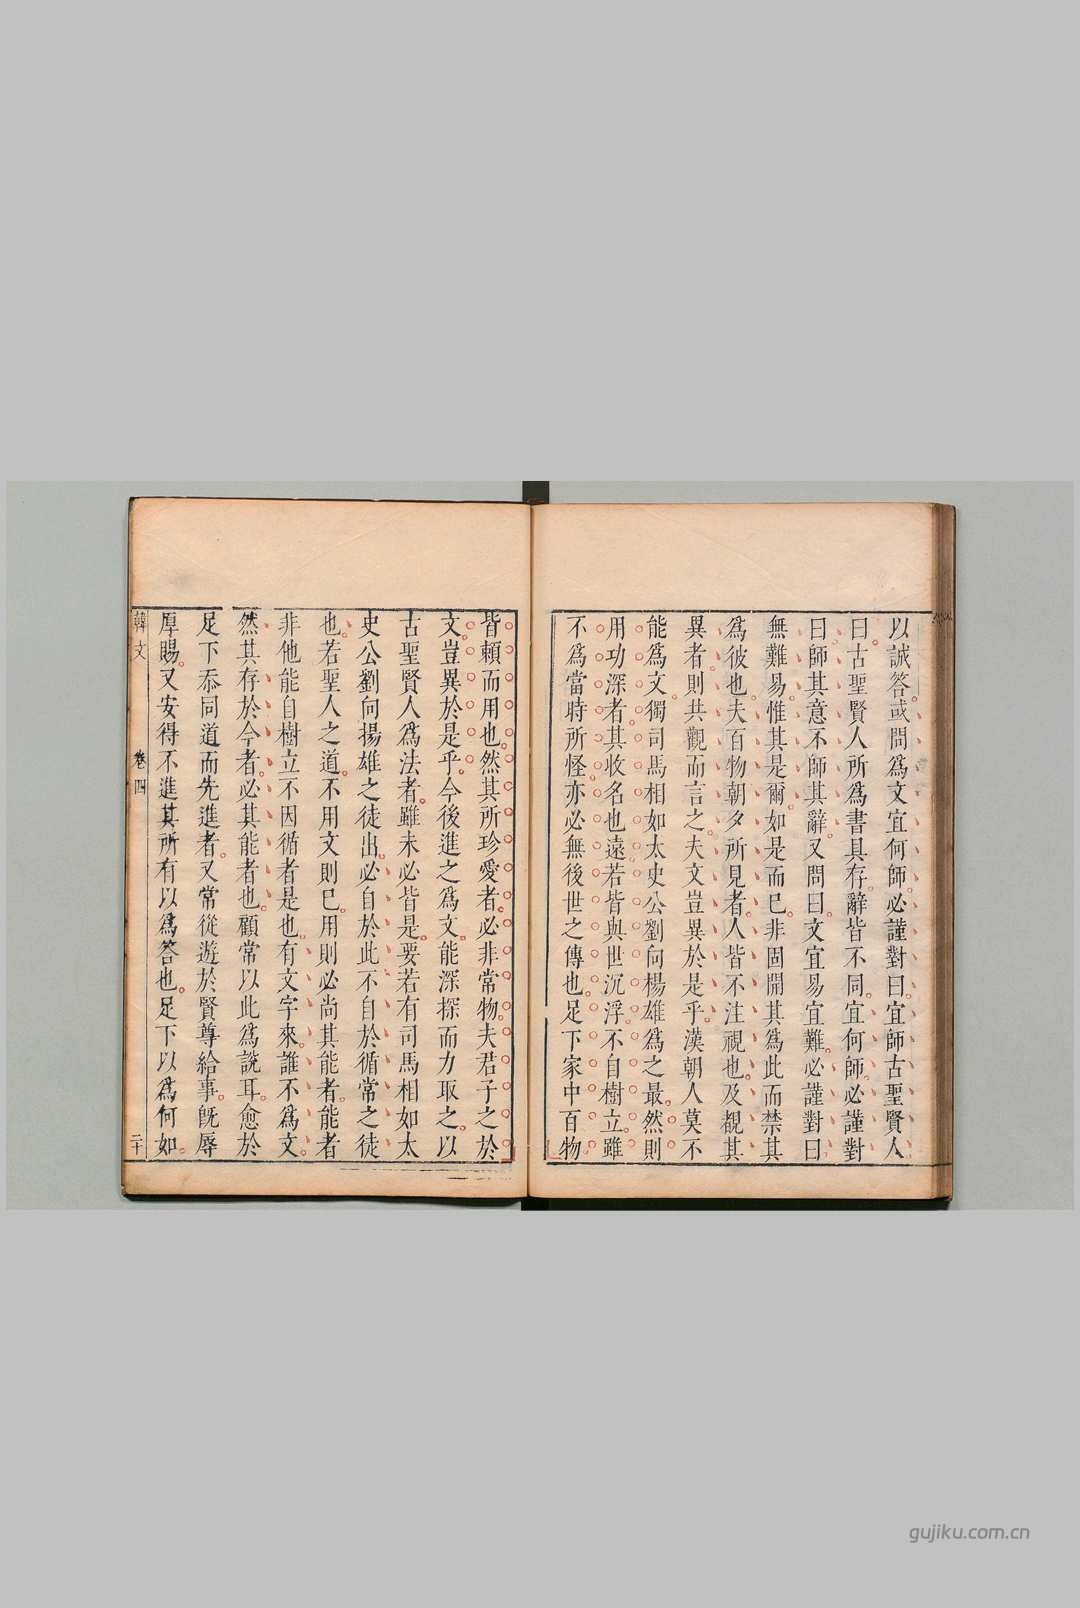 以誠答或問爲文宜何師必謹對曰宜師古聖賢人
曰古聖賢人所爲書具存辭皆不同宜何師必謹對
曰師其意不師其辭又問曰文宜易宜難必謹對曰
無難易惟其是爾如是而已非固開其爲此而禁其
爲彼也夫百物朝夕所見者人皆不注視也及覩其
異者則共觀而言之夫文豈異於是乎漢朝人莫不
能爲文獨司馬相如太史公劉向楊雄爲之最然則
用功深者其收名也遠若皆與世沉浮不自樹立雖
不爲當時所怪亦必無後世之傳也足下家中百物
皆頼而用也然其所珍愛者必非常物夫君子之於
文豈異於是乎今後進之爲文能深探而力取之以
古聖賢人爲法者雖未必皆是要若有司馬相如太
史公劉向揚雄之徒出必自於此不自於循常之徒
也若聖人之道不用文則已用則必尚其能者能者
非他能自樹立不因循者是也有文字來誰不爲文
然其存於今者必其能者也顧常以此爲說耳愈於
足下忝同道而先進者又常從遊於賢尊給事旣辱
厚賜又安得不進其所有以爲答也足下以爲何如
韓文 卷四 二十
gujiku.com.cn